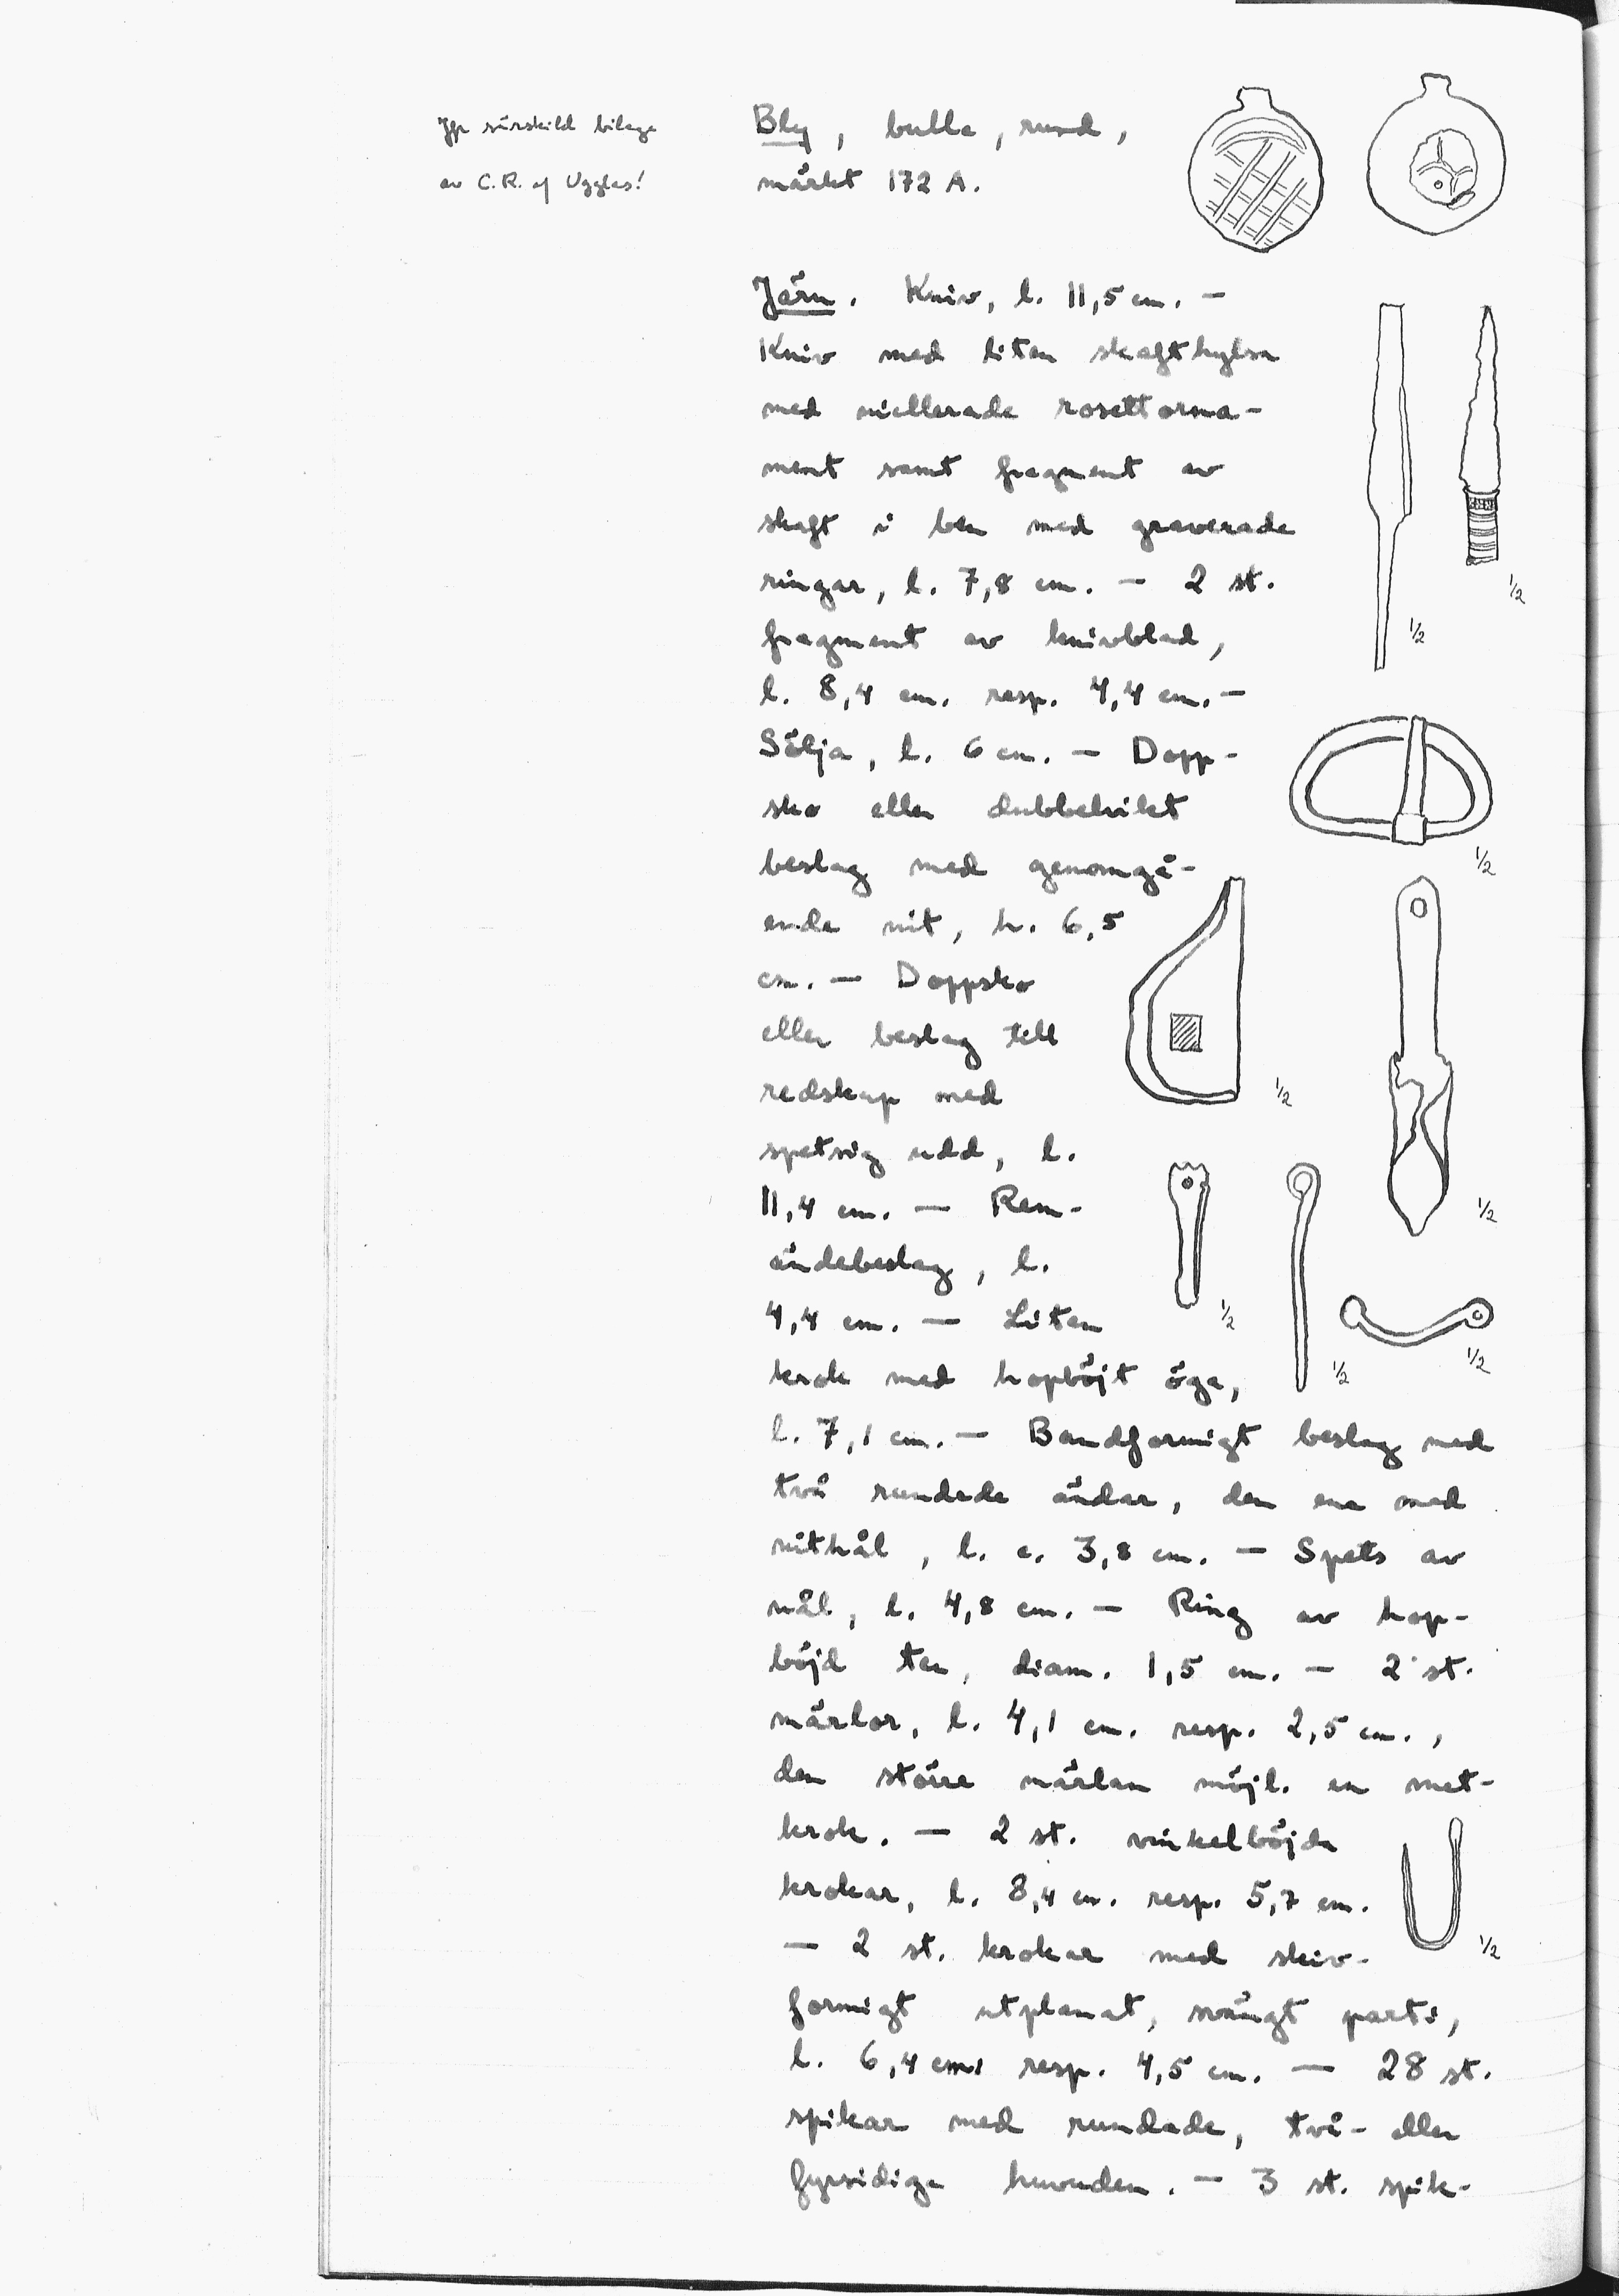 Jfr särskild bilaga
av C. R. af Ugglas!
Bly, bulla, rund,
märkt 172 A.
Järn. Kniv, l. 11,5 cm. —
Kniv med liten skafthylsa
med niellerade rosettorna-
ment samt fragment av
skaft i ben med graverade
ringar, l. 7,8 cm. — 2 st.
1/2
fragment av knivblad,
1/2
l. 8,4 cm. resp. 4,4 cm. —
Sölja, l. 6 cm. — Dopp-
sko eller dubbelvikt
1/2
beslag med genomgå-
ende nit, h. 6,5
cm. — Doppsko
eller beslag till
1/2
redskap med
spetsig udd, l.
11,4 cm. — Rem-
1/2
ändebeslag, l.
4,4 cm. — Liten
1/2
krok med hopböjt öga,
1/2
1/2
l. 7,1 cm. — Bandformigt beslag med
två rundade ändar, den ena med
nithål, l. c. 3,8 cm. — Spets av
nål, l. 4,8 cm. — Ring av hop-
böjd ten, diam. 1,5 cm. — 2 st.
märlor, l. 4,1 cm. resp. 2,5 cm.,
den större märlan möjl. en met-
krok. — 2 st. vinkelböjda
krokar, l. 8,4 cm. resp. 5,7 cm.
— 2 st. krokar med skiv-
1/2
formigt utplanat, svängt parti,
l. 6,4 cm. resp. 4,5 cm. — 28 st.
spikar med rundade, två- eller
fyrsidiga huvuden. — 3 st. spik-